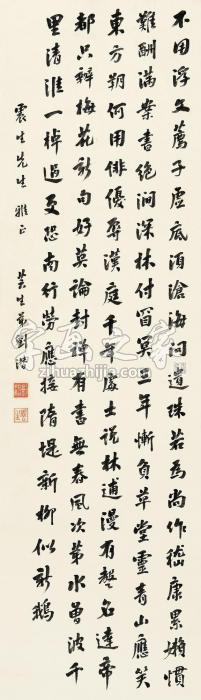 不用浮文荐子虚底须沧海问遗珠若为尚作嵇康累嬾惯
難酬满案書絶涧深林付窅冥三年慚負草堂靈青山應笑
東方朔何用俳優辱漢庭千年處士説林逋漫有聲名達帝
都只辦梅花新句好莫論封禪有書無春風次第水曾波千
里清淮一棹過更恐南行勞應接隋堤新柳似新鵝
震生先生雅正
芸生弟劉濬